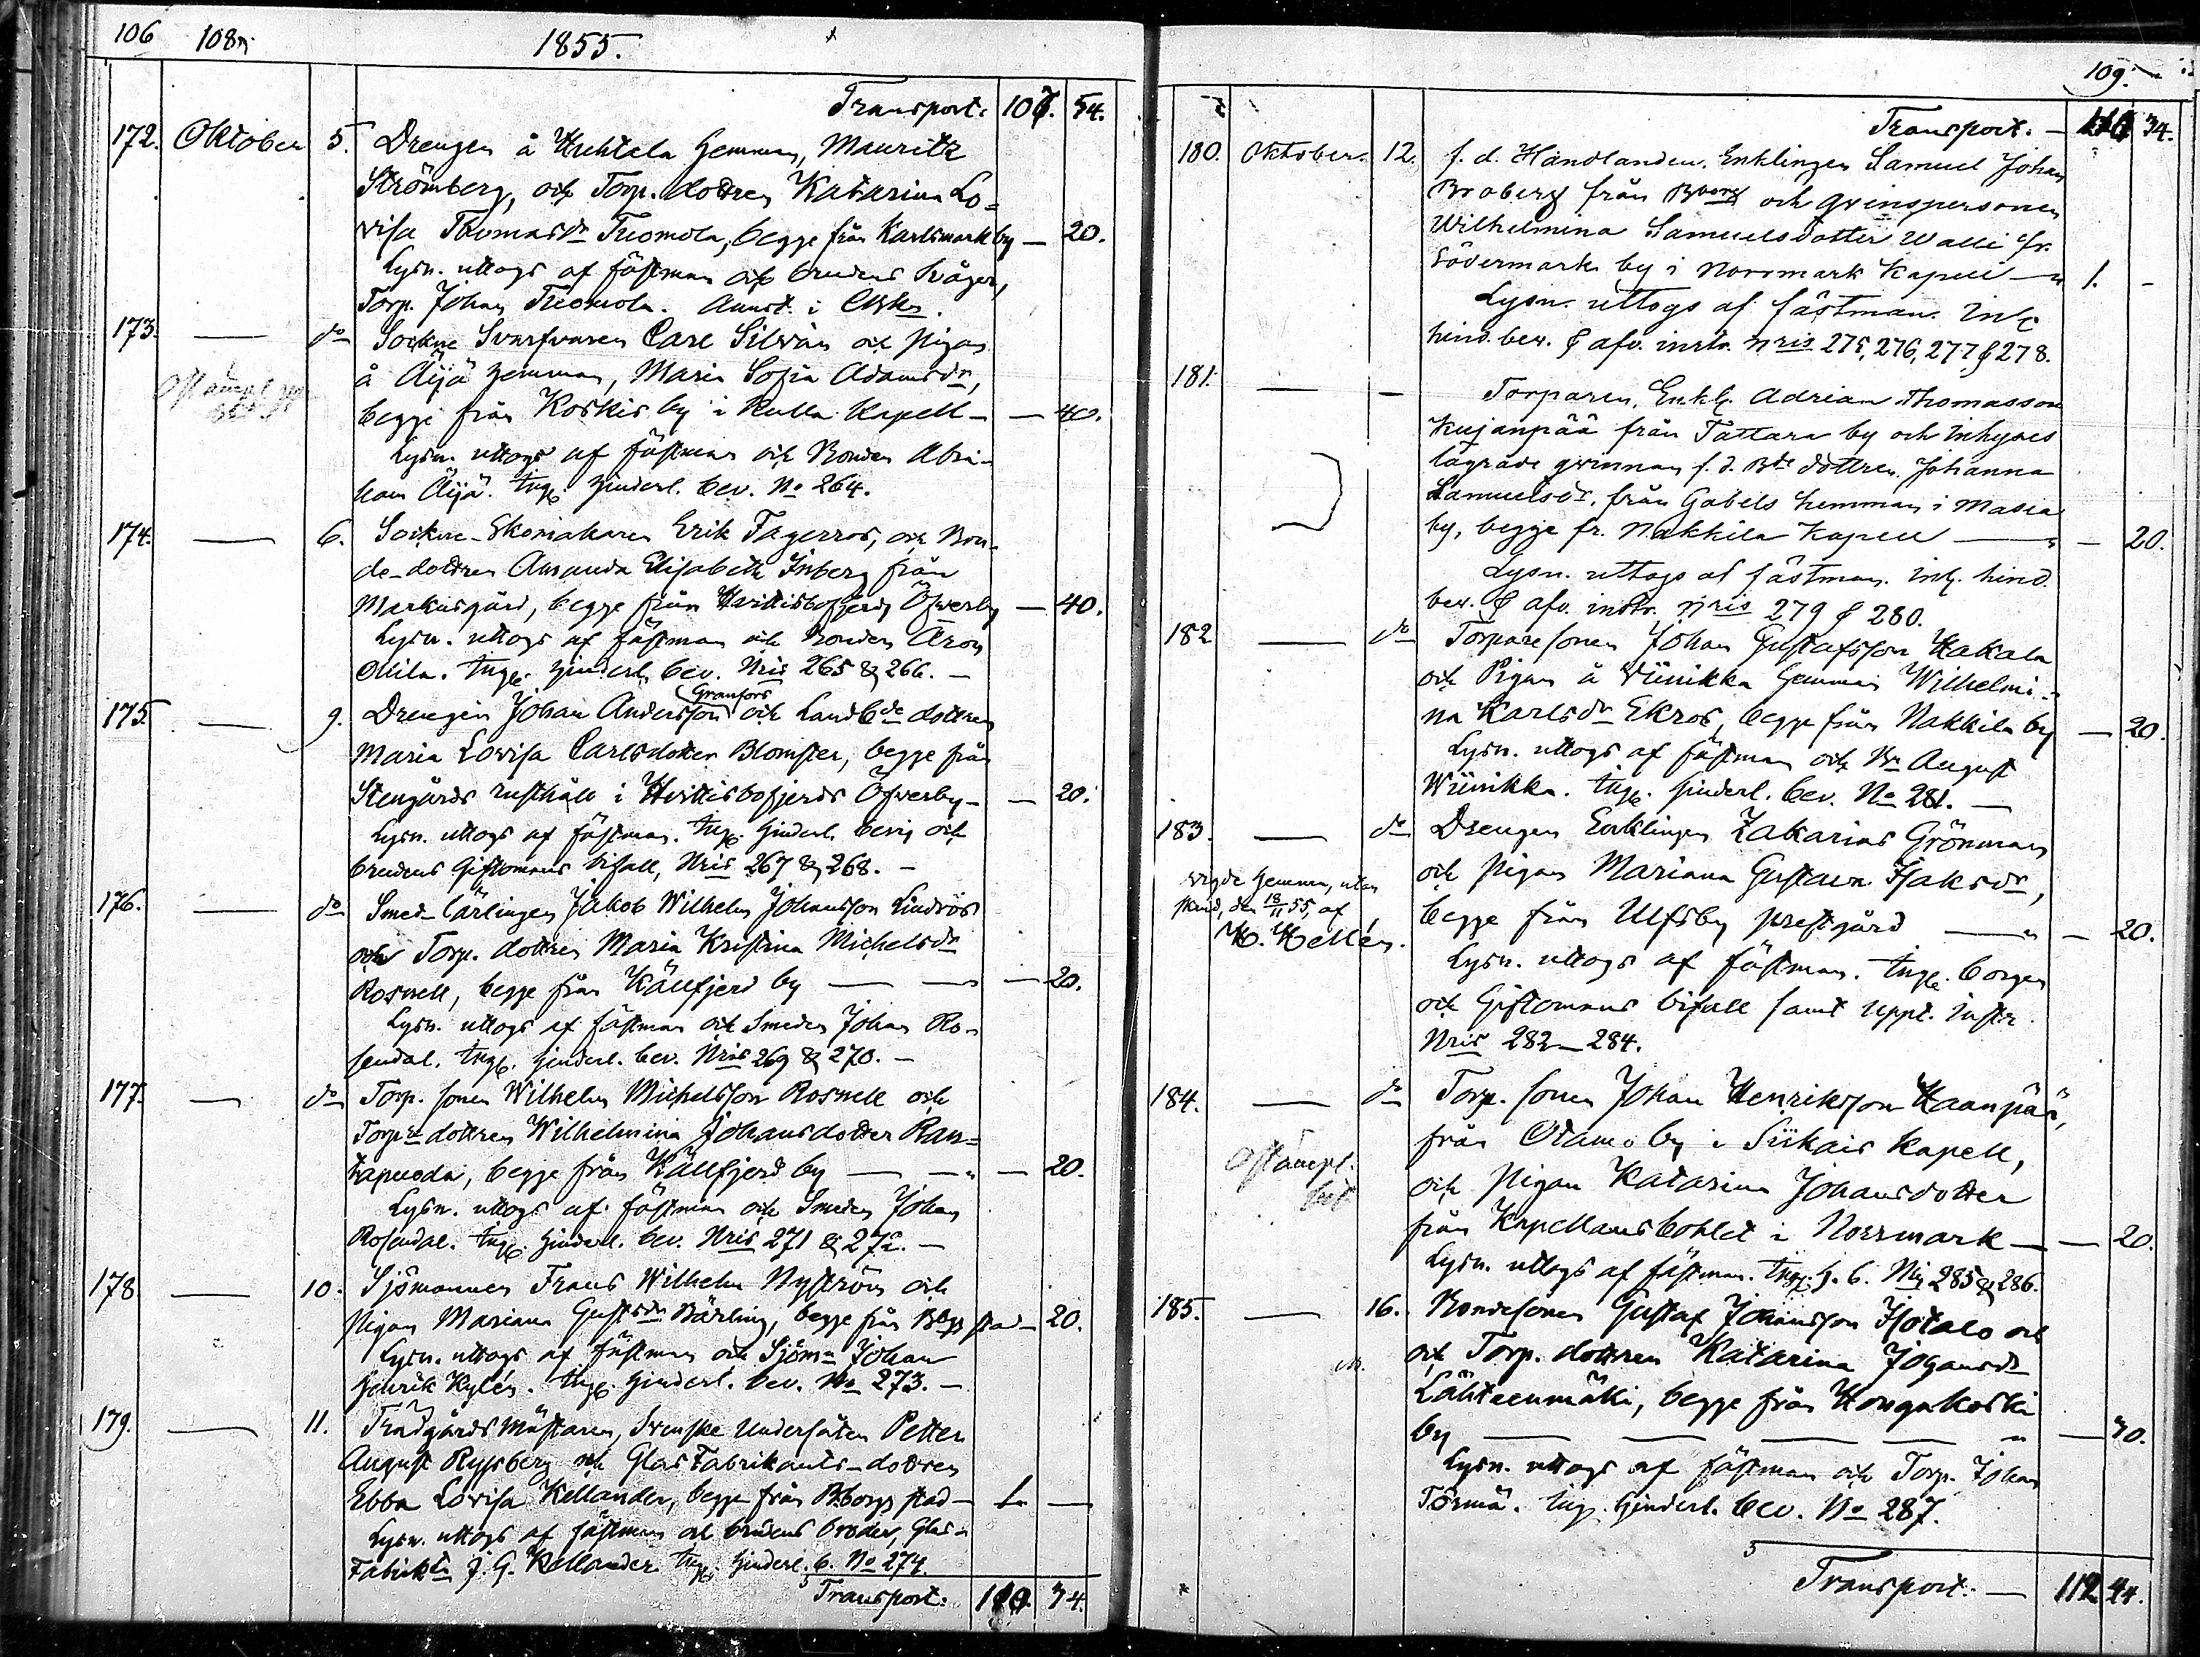 106 108
1855.
Transport. 107. 54.
172. Oktober 5. Drengen å Huhtala hemman, Mauritz
Strömberg, och Torp. dottren Katarina Lo=
visa Thomasdr Tuomola, begge från Karlsmark by — 20.
Lysn. uttogs af fästman och brudens Svåger,
Torp. Johan Tuomola. Annot. i
173. — do Sockne Svarfvaren Carl Silvān och pigan
å Äijä hemman, Maria Sofia Adamsdr,
begge från Koskis by i Kulla Kapell — — 40.
Lysn. uttogs af fästman och Bonden Abra-
ham Äijä. Ingl. hinderl. bev. No 264.
174. — 6. Sockne-Skomakaren Erik Fagerros, och Bon-
de-dottren Amanda Elisabeth Inberg från
Markusgård, begge från Hvittisbofjerds Öfverby — 40.
Lysn. uttogs af fästman och Bonden Aron
Ingl. hinderl. bev. Nris 265 & 266. —
175. — 9. Drengen Johan Andersson Granfors och Landbde dottren
Maria Lovisa Carlsdotter Blomster, begge från
Stengårds rusthåll i Hvittisbofjerds Öfverby — — 20.
Lysn. uttogs af fästman. Ingl. hinderl. bevis och
brudens Giftomans bifall, Nris 267 & 268. —
176. — do Smed-lärlingen Jakob Wilhelm Johansson Lindros
och Torp. dottren Maria Kristina Michelsdr
Rosnell, begge från Källfjerd by — — — 20.
Lysn. uttogs af fästman och Smeden Johan Ro-
sendal. Ingl. hinderl. bev. Nris 269 & 270. —
177. — do Torp. sonen Wilhelm Michelsson Rosnell och
Torpre dottren Wilhelmina Johansdotter Ran=
tapuoda, begge från Källfjerd by — — — 20.
Lysn. uttogs af fästman och Smeden Johan
Rosendal. Ingl. hinderl. bev. Nris 271 & 272. —
178 — 10. Sjömannen Frans Wilhelm Nyström och
pigan Mariana Gustfsdr Bärling, begge från Bbgs stad — 20.
Lysn. uttogs af fästman och Sjömn Johan
Henrik Kylén. Ingl. hinderl. bev. No 273. —
179. — 11. Trädgårds Mästaren, Svenske Undersåten Petter
August Rypsberg och Glas Fabrikants-dottren
Ebba Lovisa Kellander, begge från Bborgs stad — 1. —
Lysn. uttogs af fästman och brudens broder, Glas-
Fabrikn J. G. Kellander. Ingl. hinderl. b. No 274.
Transport. 110. 34.
109.
Transport. — 110 34.
180. Oktober. 12. f. d. Handlanden, Enklingen Samuel Johan
Broberg från Bborg och qvinspersonen
Wilhelmina Samuelsdotter Walli fr.
Södermark by i Norrmark Kapell — 1. -
Lysn. uttogs af fästman. Inl.
hind. bev. & afv. instr. nris 275, 276, 277 & 278.
181. — - Torparen, Enkl. Adrian Thomasson
Kujanpää från Tattara by och Inhyses
lägrade qvinnan f. d. Bde dottren Johanna
Samuelsdr, från Gabels hemman i Masia
by, begge fr. Nakkila Kapell — — 20.
Lysn. uttogs af fästman. Inl. hind.
bev. & afv. instr. nris 279 & 280.
182 — do Torparesonen Johan Gustafsson Hakala
och Pigan å Wiinikka hemman Wilhelmi-
na Karlsdr Ekros, begge från Nakkila by — 20.
Lysn. uttogs af fästman och Bn August
Wiinikka. Ingl. hinderl. bev. No 281. —
183. — do Drengen Enklingen Zakarias Grönman
och pigan Mariana Gustava Isaksdr,
begge från Ulfsby prestgård — — 20.
Lysn. uttogs af fästman. Ingl. borgen
och Giftomans bifall samt uppt. instr.
Nris 282—284.
vigde hemma, utan
skrud, den 18/11 55, af
H. Hellén.
184. — do Torp. sonen Johan Henriksson Haanpää,
från Otamo by i Siikais kapell,
och pigan Katarina Johansdotter
från Kapellansbohlet i Norrmark — — 20.
Lysn. uttogs af fästman. Ingl. h. b. Nris 285 & 286.
Ostämpl.
bet
185. — 16. Bondesonen Gustaf Johansson Isotalo och
och Torp. dottren Katarina Johansdr
Lähteenmäki, begge från Kongakoski
by — — — — — 30.
Lysn. uttogs af fästman och Torp. Johan
Törmä. Ingl. hinderl. bev. No 287.
Transport. — 112 44.